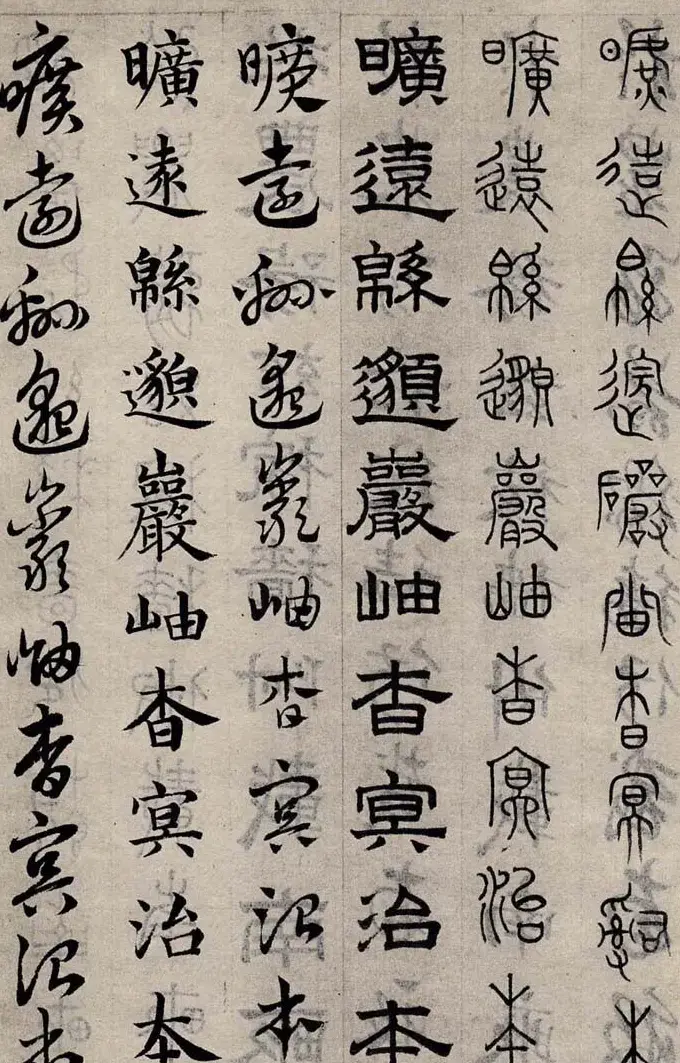 曠遠緜邈巖岫杳冥治本
曠遠緜邈巖岫杳冥治本
曠遠緜邈巖岫杳冥治本
曠遠緜邈巖岫杳冥治本
曠遠緜邈巖岫杳冥治本
曠遠緜邈巖岫杳冥治本